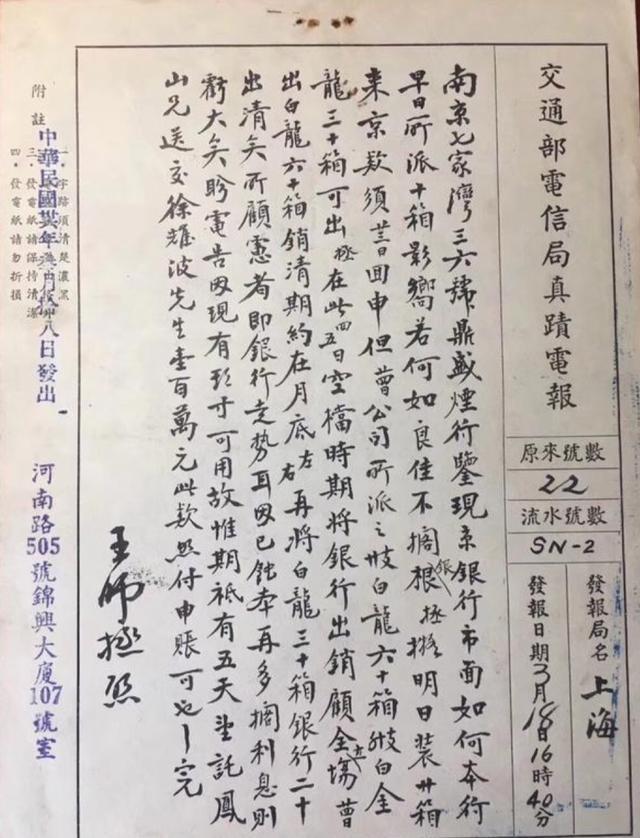 交通部電信局真蹟電報
原來號數
22
流水號數
SN-2
發報局名 上海
發報日期 3月18日16時40分
南京七家灣三六號鼎盛煙行鑒現京銀行市面如何本行
早日所派十箱影嚮若何如良佳不擱根銀極擬明日裝卅箱
來京款須廿三日回申但曾公司所派之妝白龍六十箱妝白金
龍三十箱可出極在此四五日空檔時期將銀行出銷顧全市場曾
出白龍六十箱銷清期約在月底左右再將白龍三十箱銀行二十
出清矣所顧憲者即銀行走勢耳因已蝕本再多擱利息則
虧大矣盼電告因現有頭寸可用故惟期祇有五天望託鳳
山兄送交徐耀波先生壹百萬元此款照付申賬可也完
王師拯
附註
一字跡須清楚濃黑
三發電紙請保持清潔
四發電紙請勿折損
中華民國 年 月 八日發出
河南路505號錦興大廈107號室